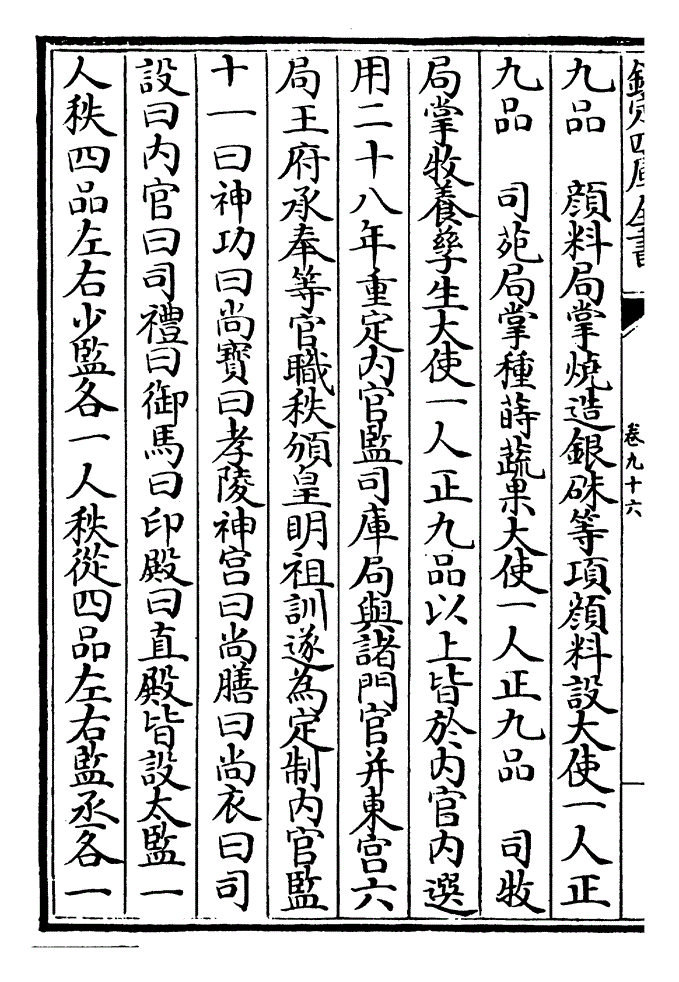 欽定四庫全書
卷九十六
九品　顔料局掌燒造銀硃等項顔料設大使一人正
九品　司苑局掌種蒔蔬果大使一人正九品　司牧
局掌牧養孳生大使一人正九品以上皆於内官内選
用二十八年重定内官監司庫局與諸門官并東宫六
局王府承奉等官職秩頒皇明祖訓遂為定制内官監
十一曰神功曰尚寳曰孝陵神宫曰尚膳曰尚衣曰司
設曰内官曰司禮曰御馬曰印殿曰直殿皆設太監一
人秩四品左右少監各一人秩從四品左右監丞各一